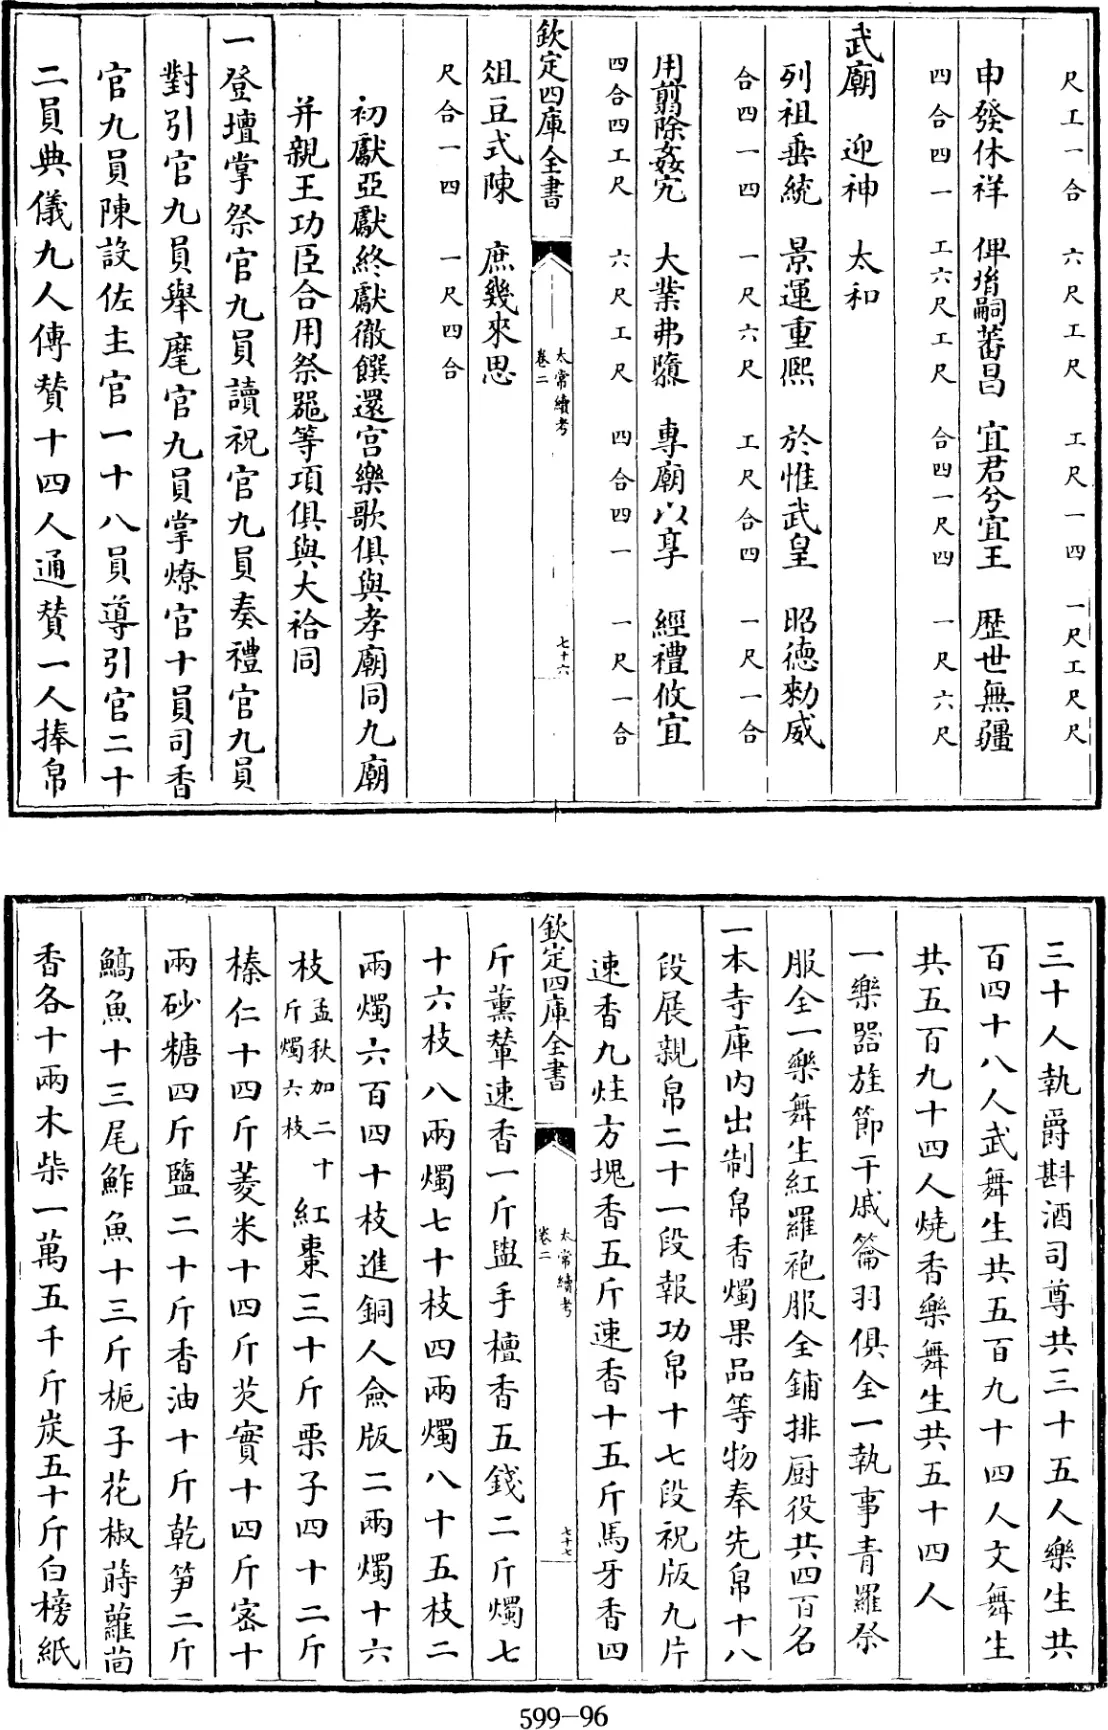 尺工一合　六尺工尺　工尺一四　一尺工尺尺
申發休祥　俾㣧嗣蕃昌　宜君兮宜王　歷世無疆
四合四一　工六尺工尺　合四一尺四　一尺六尺
武廟　迎神　太和
列祖垂統　景運重熙　於惟武皇　昭德勑威
合四一四　一尺六尺　工尺合四　一尺一合
用剪除姦宄　大業弗隳　專廟以享　經禮攸宜
四合四工尺　六尺工尺　四合四一　一尺一合
欽定四庫全書
太常續考
卷二
七十六
俎豆式陳　庶幾來思
尺合一四　一尺四合
初獻亞獻終獻徹饌還宮樂歌俱與孝廟同九廟
并親王功臣合用祭器等項俱與大祫同
一登壇掌祭官九員讀祝官九員奏禮官九員
對引官九員舉麾官九員掌燎官十員司香
官九員陳設佐主官一十八員導引官二十
二員典儀九人傳贊十四人通贊一人捧帛
三十人執爵斟酒司尊共三十五人樂生共
百四十八人武舞生共五百九十四人文舞生
共五百九十四人燒香樂舞生共五十四人
一樂器旌節干戚籥羽俱全一執事青羅祭
服全一樂舞生紅羅袍服全鋪排廚役共四百名
一本寺庫內出制帛香燭果品等物奉先帛十八
段展親帛二十一段報功帛十七段祝版九片
速香九炷方塊香五斤速香十五斤馬牙香四
欽定四庫全書
太常續考
卷二
七十七
斤薰輦速香一斤盥手檀香五錢二斤燭七
十六枝八兩燭七十枝四兩燭八十五枝二
兩燭六百四十枝進銅人僉版二兩燭十六
枝孟秋加二十斤燭六枝紅棗三十斤栗子四十二斤
榛仁十四斤菱米十四斤芡實十四斤宻十
兩砂糖四斤鹽二十斤香油十斤乾笋二斤
鱎魚十三尾鮓魚十三斤梔子花椒蒔蘿茴
香各十兩木柴一萬五千斤炭五十斤白榜紙
599-96